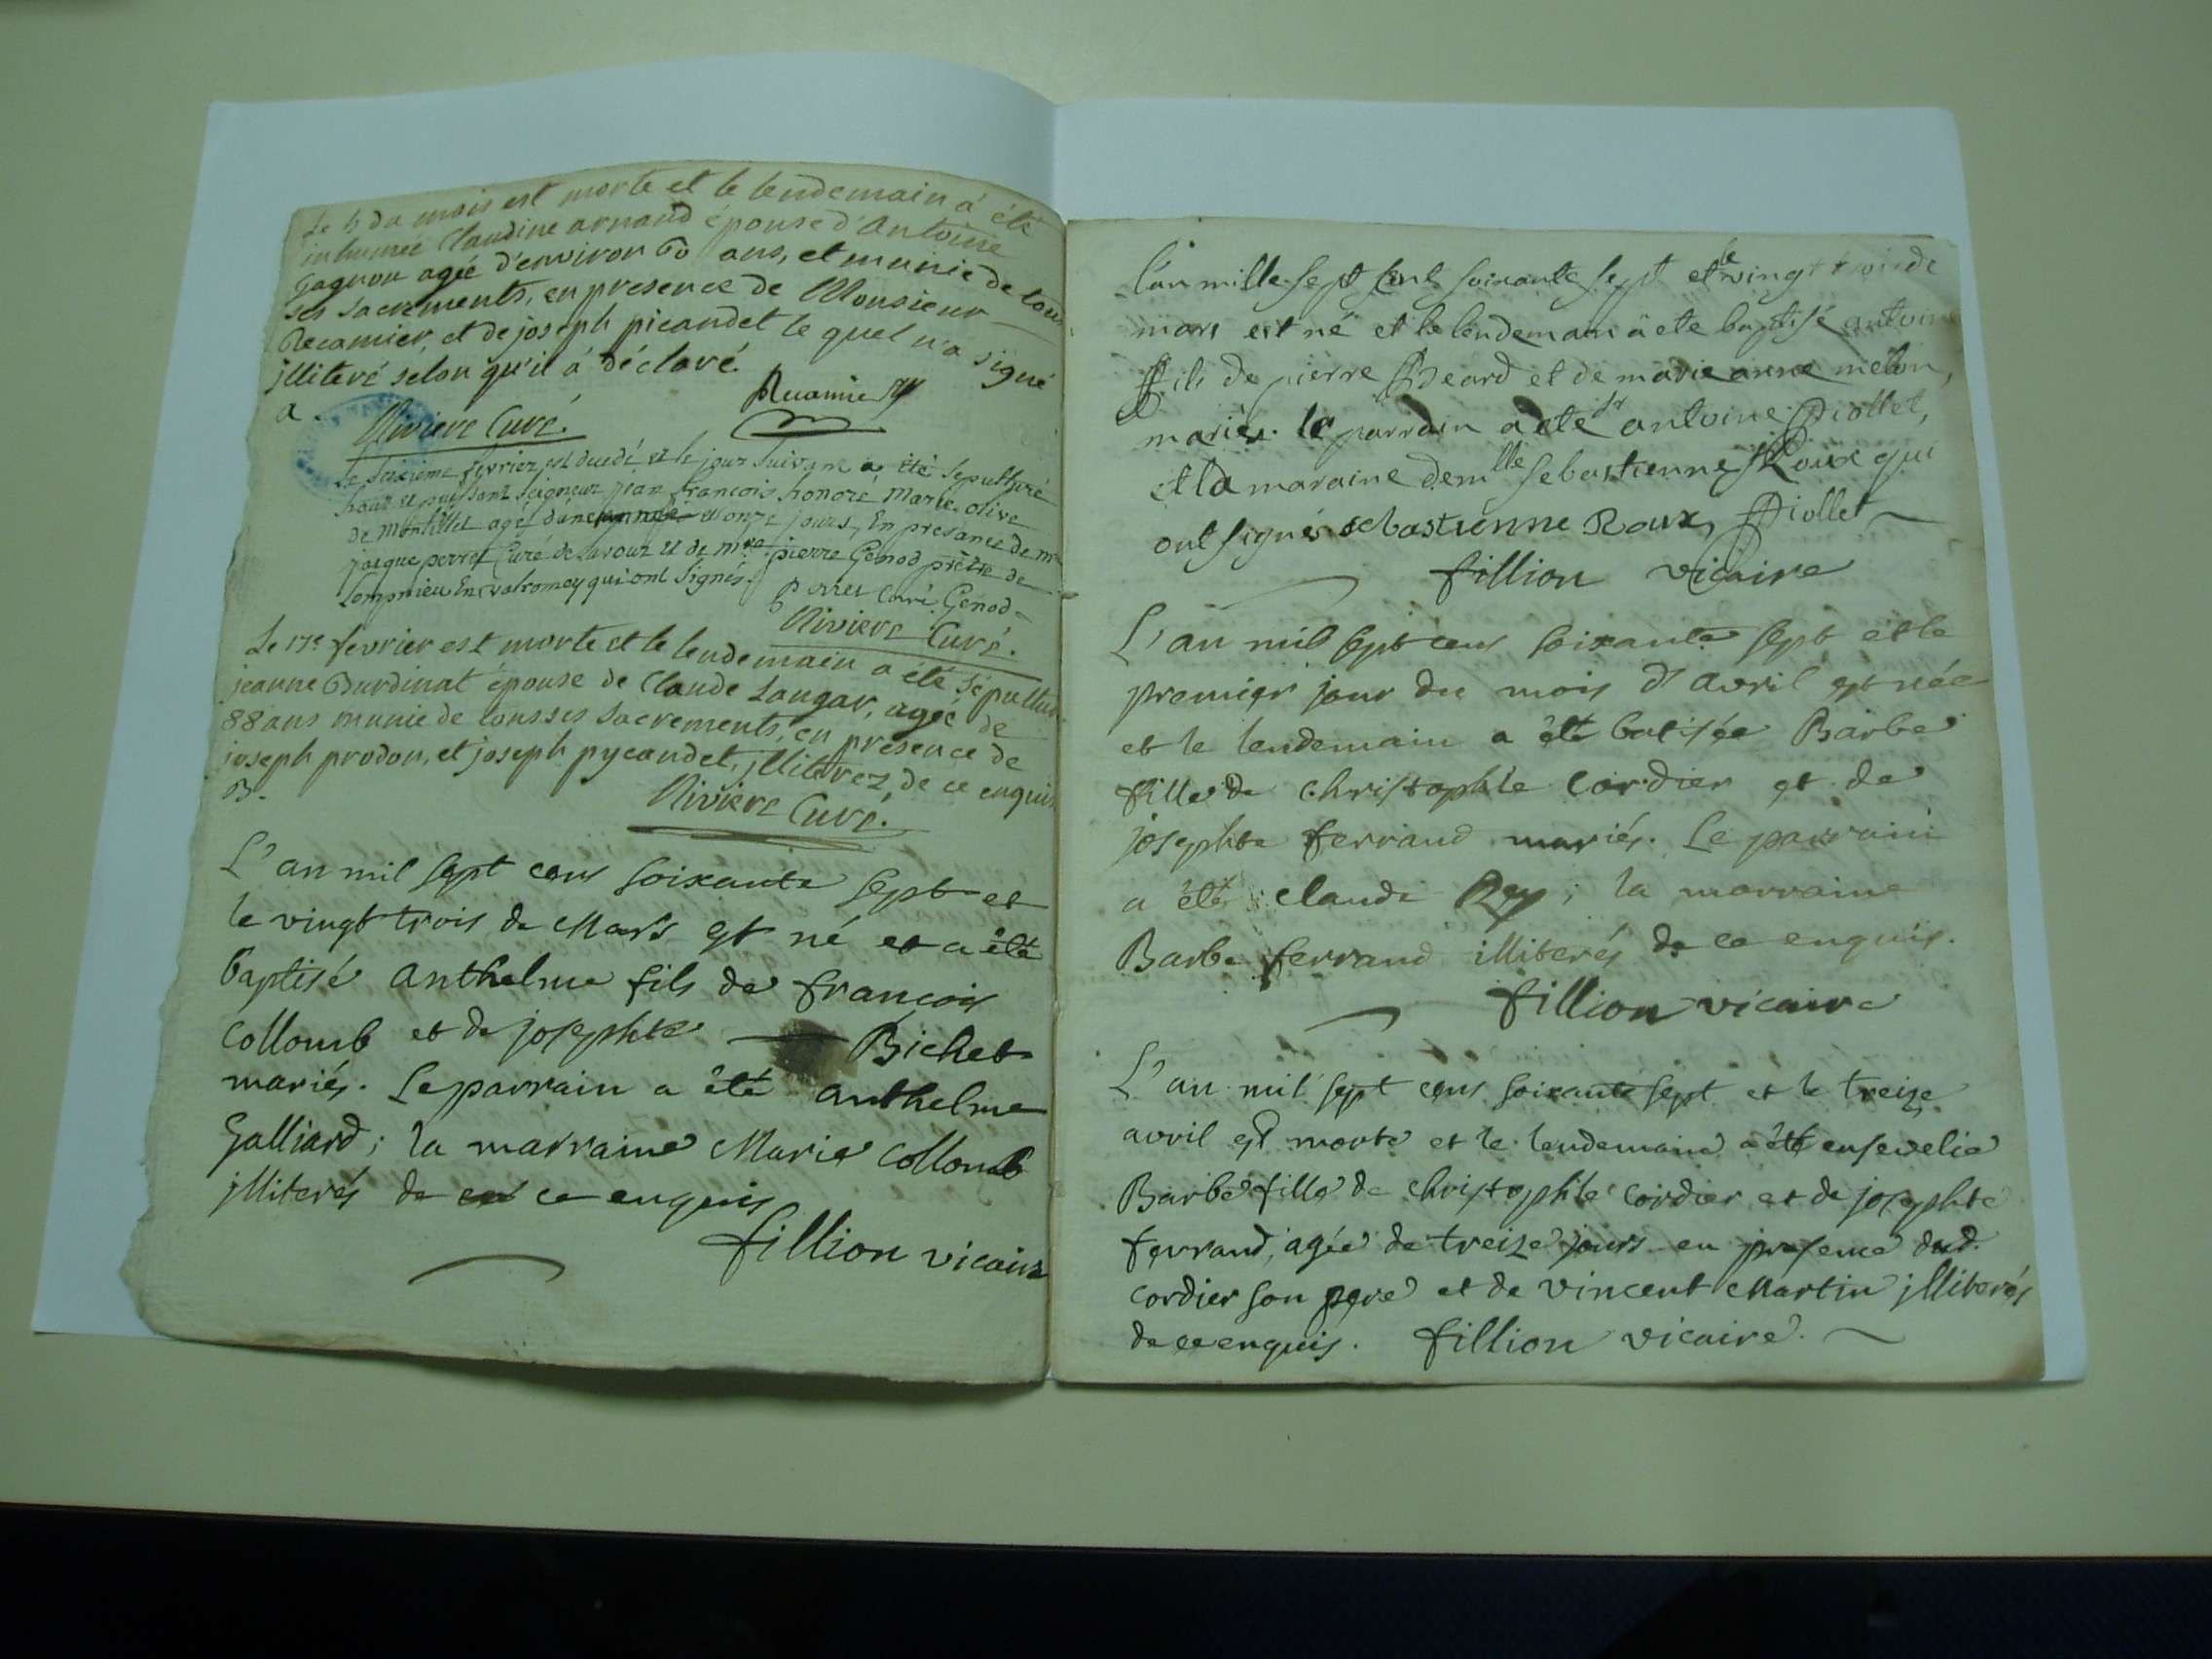 Le 5 du mois est morte et le lendemain a été
inhumée Claudine arnaud épouse d'Antoine
gagnon agée d'environ 60 ans, et munie de tou
ses sacrements, en presence de Monsieur
Recamier, et de joseph picandet le quel n'a signé
jlliteré selon qu'il a déclaré.
a.
Recamier
Riviere Curé.
Le seizieme fevrier est decedé et le jour suivant a été sepulturé
haut et puissant seigneur jean francois honoré Marie olive
de Montillet agé et onze jours, En presance de mre
jacque perret Curé de Lavour et de mre pierre Genod prêtre de
Lompnieu En valromey qui ont signés.
perret Curé. Genod
Riviere Curé.
Le 17e fevrier est morte et le lendemain a été sépultur
jeanne Burdinat épouse de Claude Saugar, agée de
88 ans munie de tous ses sacrements, en présence de
joseph prodon, et joseph pycandet, jlliterez, de ce enquis
B.
Riviere Curé.
L'an mil sept cens soixante sept et
le vingt trois de Mars est né et a été
baptisé anthelme fils de françois
Collomb et de josephte Bichet
mariés. Le parrain a été anthelme
Galliard; la marraine Marie Collomb
jlliterés de ce enquis
fillion vicaire
L'an mille sept cent soixante sept et le vingt trois de
mars est né et le lendemain a ete baptisé antoine
fils de pierre Beard et de marie anne melon,
mariés. le parrain a ete sr antoine Piollet,
et la maraine demlle sebastienne Roux qui
ont signés sebastienne Roux, Piollet
fillion vicaire
L'an mil sept cens soixante sept et le
premier jour du mois d'avril est née
et le lendemain a été batisée Barbe
fille de christophle Cordier et de
josephte ferrand mariés. Le parrain
a été claude Rey; la marraine
Barbe ferrand illiterés de ce enquis.
fillion vicaire
L'an mil sept cens soixante sept et le treize
avril est morte et le lendemain a été ensevelie
Barbe fille de christophle Cordier et de josephte
ferrand, agée de treize jours en presence dud.
Cordier son pere et de vincent Martin jlliterés
de ce enquis. fillion vicaire.